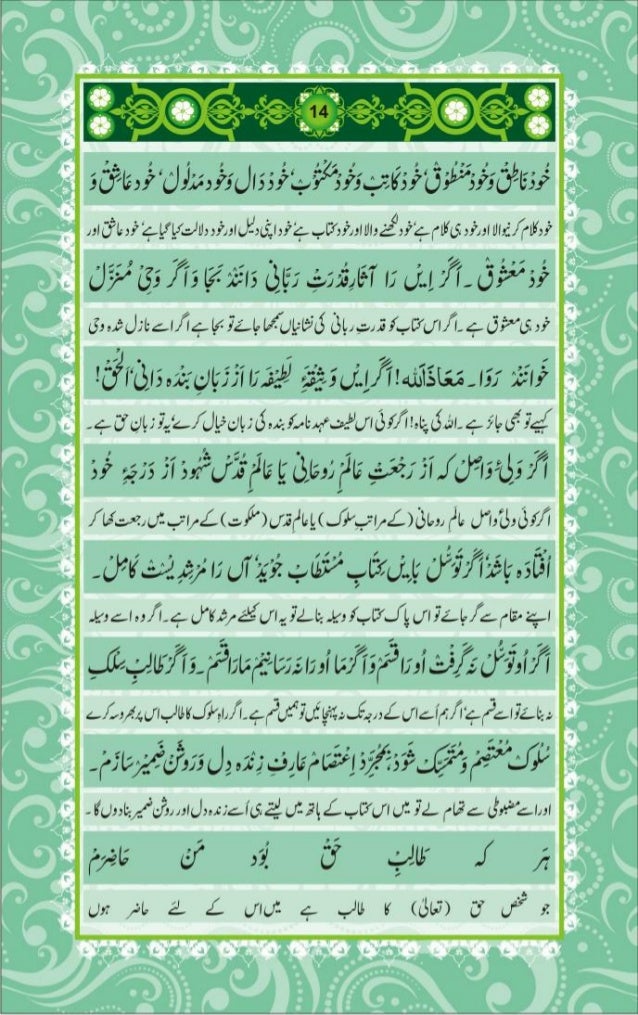 14
خُود نَاطِقْ وَخُود مَنْطُوْقْ، خُود کَاتِبْ وَخُود مَکْتُوْبْ، خُود دَالْ وَخُود مَدْلُوْلْ، خُود عَاشِقْ وَ
خود کلام کرنیوالا اور خود ہی کلام ہے، خود لکھنے والا اور خود کتاب ہے، خود اپنی دلیل اور خود دلالت کیا گیا ہے، خود عاشق اور
خُود مَعْشُوْقْ ۔ اَگَرْ اِیْں رَا آثَارِ قُدْرَتِ رَبَّانِی دَانَنْدْ بَجَا وَ اَگَر وَحْیِ مُنَزَّلْ
خود ہی معشوق ہے ۔ اگر اس کتاب کو قدرتِ ربانی کی نشانیاں سمجھا جائے تو بجا ہے اگر اسے نازل شدہ وحی
خَوَانَنْدْ رَوَا۔ مَعَاذَاللّٰه! اَگَر اِیْں وَثِیْقَۂِ لَطِیْفَہ رَا اَزْ زَبَانِ بَنْدَہ دَانِی، اَلْحَقْ!
کہیے تو بھی جائز ہے ۔ اللہ کی پناہ! اگر کوئی اس لطیف عہد نامہ کو بندہ کی زبان خیال کرے، یہ تو زبانِ حق ہے۔
اَگَرْ وَلِیِّ وَاصِلْ کہ اَزْ رَجْعَتِ عَالَمِ رُوحَانِی یَا عَالَمِ قُدْسْ شُہُودْ اَزْ دَرْجَۂِ خُودْ
اگر کوئی ولی واصل عالم روحانی (کے مراتبِ سلوک) یا عالم قدس (ملکوت) کے مراتب میں رجعت کھا کر
اُفْتَادَہ بَاشَدْ، اَگَرْ تَوَسُّلْ بَایں کِتَابِ مُسْتَطَابْ جُوْیَدْ، آں رَا مُرْشِدِیْسْتْ کَامِلْ۔
اپنے مقام سے گر جائے تو اس پاک کتاب کو وسیلہ بنا لے تو یہ اس کیلئے مرشد کامل ہے۔ اگر وہ اسے وسیلہ
اَگَرْ اُو تَوَسُّلْ نَہ گِرِفْتْ اُو رَا قَسَمْ وَ اَگَرْ مَا اُو رَا نَہ رَسَانِیْم مَا رَا قَسَمْ۔ وَ اَگَرْ طَالِبِ سِلْکِ
نہ بنائے تو اسے قسم ہے، اگر ہم اُسے اس کے درجہ تک نہ پہنچائیں تو ہمیں قسم ہے۔ اگر راہِ سلوک کا طالب اس پر بھروسہ کرے
سُلُوک مُعْتَصِمْ وَ مُتَمَسِّک شَوَدْ، بَمُجَرَّدِ اِعْتِصَامْ عَارِف زِنْدَہ دِل وَ رَوْشَنْ ضَمِیْر سَازَمْ۔
اور اسے مضبوطی سے تھام لے تو میں اس کتاب کے ہاتھ میں لیتے ہی اُسے زندہ دل اور روشن ضمیر بنا دوں گا ۔
ہَر کہ طَالِبِ حَقْ بُوَد مَنْ حَاضِرَمْ
جو شخص حق (تعالیٰ) کا طالب ہے میں اس کے لئے حاضر ہوں